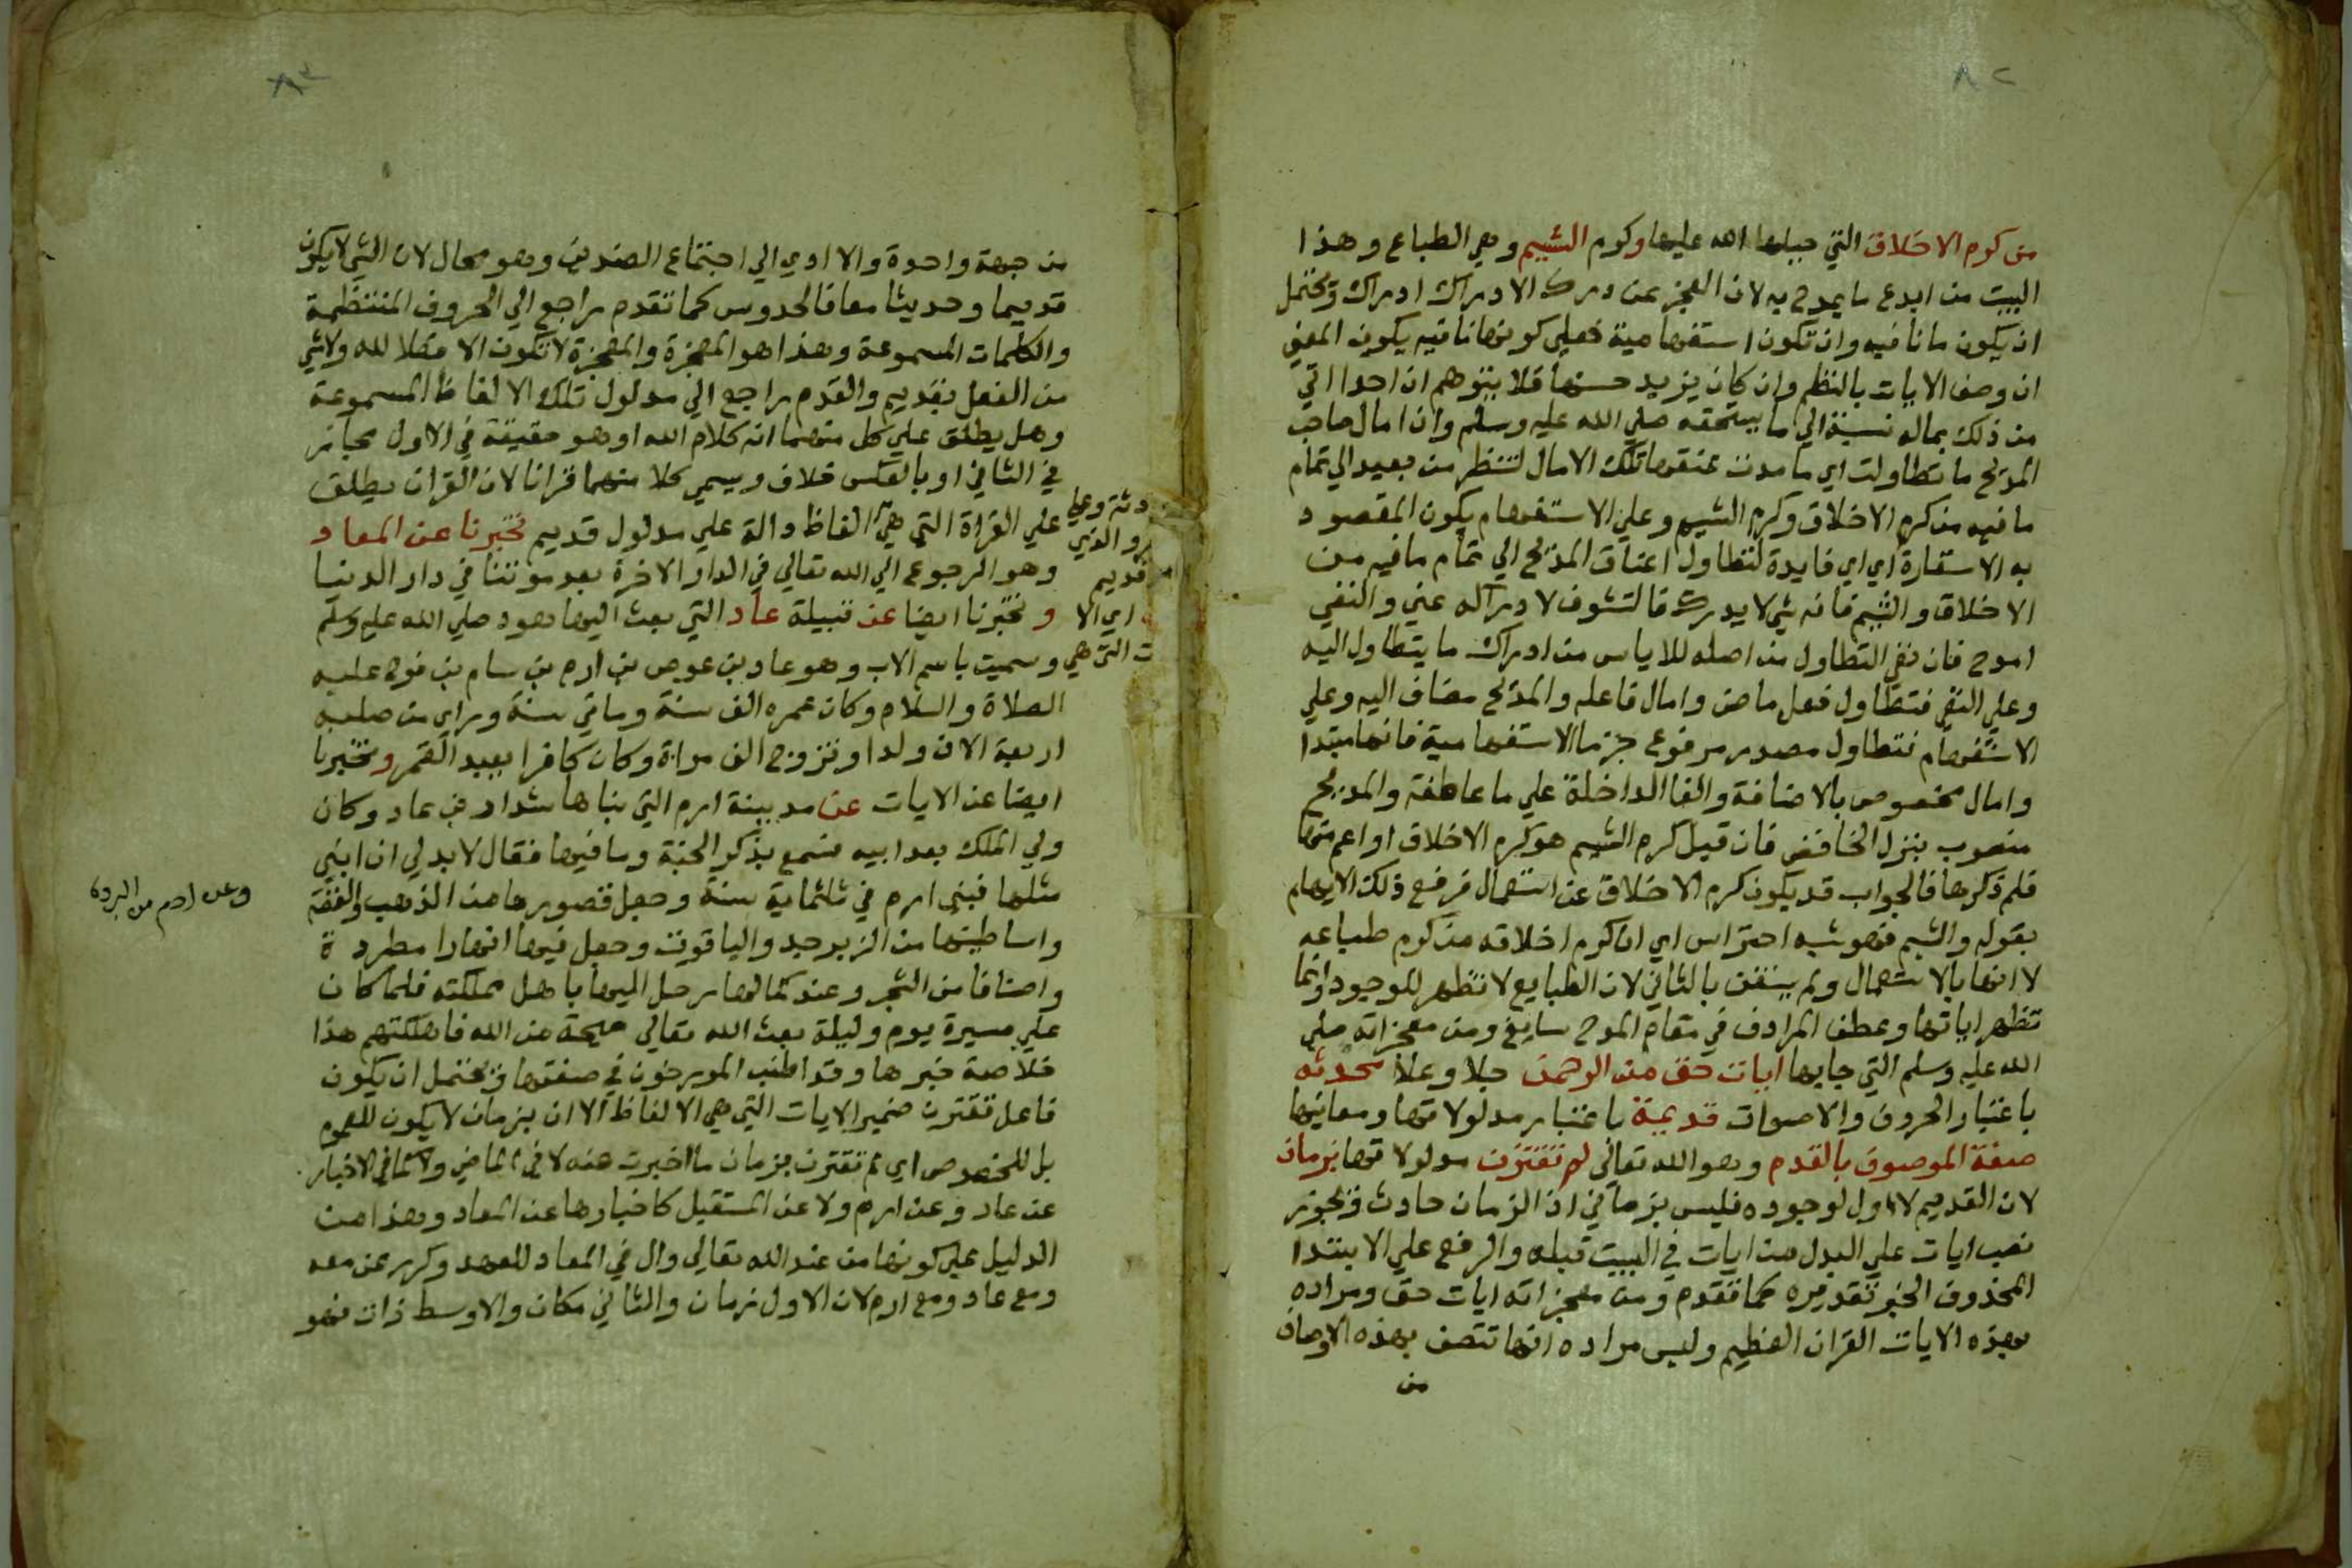 ٨٢
من كرم الاخلاق التي جبله الله عليها وكرم الشيم وهي الطباع وهذا
البيت من ابدع ما يمدح به لان العجز عن درك الادراك ادراك ويحتمل
ان يكون ما نافيه وان تكون استفهامية فعلي كونها نافيه يكون المعني
ان وصف الايات بالنظم وان كان يزيد حسنها فلا يتوهم ان احدا اتي
من ذلك بماله نسبة الي ما يستحقه صلي الله عليه وسلم وان امال صاحب
المديح ما تطاولت اي ما مدت عنقها تلك الامال لتنظر من بعيد الي تمام
ما فيه من كرم الاخلاق وكرم الشيم وعلي الاستفهام يكون المقصود
به الاستعارة اي اي فايدة لتطاول اعناق المديح الي تمام ما فيه من
الاخلاق والشيم فانه شي لا يدرك فالتشوف لادراكه عني والنفي
امدح فان نفي التطاول من اصله للاياس من ادراك ما يتطاول اليه
وعلي النفي فتطاول فعل ماض وامال فاعله والمديح مضاف اليه وعلي
الاستفهام فتطاول مصدر مرفوع خبر ما الاستفهامية فانها مبتدا
وامال مخصوص بالاضافة والفا الداخلة علي ما عاطفة والمديح
منصوب بنزل الخافض فان قيل كرم الشيم هو كرم الاخلاق او اعم منها
فلم ذكرها فالجواب قد يكون كرم الاخلاق عن استعمال فرفع ذلك الايهام
بقوله والشيم فهو شبه احتراس اي ان كرم اخلاقه من كرم طباعه
لا انها بالاستعمال ولم يستغن بالثاني لان الطبايع لا تظهر للوجود وانما
تظهر اياتها وعطف المرادف في مقام المدح سايغ ومن معجزاته صلي
الله عليه وسلم التي جا بها ايات حق من الرحمن جلا وعلا محدثه
باعتبار الحروف والاصوات قديمة باعتبار مدلولاتها ومعانيها
صفة الموصوف بالقدم وهو الله تعالي لم تقترن مدلولاتها بزمان
لان القديم لا اول لوجوده فليس بزماني اذ الزمان حادث ويجوز
نصب ايات علي البدل من ايات في البيت قبله والرفع علي الابتدا
المحذوف الخبر تقديره كما تقدم ومن معجزاته ايات حق ومراده
بهذه الايات القران العظيم وليس مراده انها تتصف بهذه الاوصاف
من
٨٣
من جهة واحدة والا ادي الي اجتماع الضدين وهو محال لان الشي لا يكون
قديما وحديثا معا فالحدوس كما تقدم راجع الي الحروف المنتظمة
والكلمات المسموعة وهذا هو المعجزة والمعجزة لا تكون الا فعلا لله ولا شي
من الفعل بقديم والقدم راجع الي مدلول تلك الالفاظ المسموعة
وهل يطلق علي كل منهما انه كلام الله او هو حقيقة في الاول مجاز
في الثاني او بالعكس خلاف ويسمي كلا منهما قرانا لان القران يطلق
علي القراة التي هي الفاظ دالة علي مدلول قديم تخبرنا عن المعاد
وهو الرجوع الي الله تعالي في الدار الاخرة بعد موتنا في دار الدنيا
وتخبرنا ايضا عن قبيلة عاد التي بعث اليها هود صلي الله عليه وسلم
وسميت باسم الاب وهو عاد بن عوص بن ارم بن سام بن نوح عليه
الصلاة والسلام وكان عمره الف سنة وماتي سنة وراي من صلبه
اربعة الاف ولدا وتزوج الف مراة وكان كافرا يعبد القمر وتخبرنا
ايضا عن الايات عن مدينة ارم التي بناها شداد بن عاد وكان
ولي الملك بعد ابيه فسمع بذكر الجنة وما فيها فقال لا بد لي ان ابني
مثلها فبني ارم في ثلثماية سنة وجعل قصورها من الذهب والفضة
واساطينها من الزبرجد والياقوت وجعل فيها انهارا مطردة
واصنافا من الشجر وعند كمالها رحل اليها باهل مملكته فلما كان
علي مسيرة يوم وليلة بعث الله تعالي صيحة من الله فاهلكتهم هذا
خلاصة خبرها وقد اطنب المورخون في صفتها ويحتمل ان يكون
فاعل تقترن ضمير الايات التي هي الالفاظ الا ان بزمان لا يكون للعموم
بل للخصوص اي لم تقترن بزمان ما اخبرت عنه لا في الماضي ولا كما في الاخبار
عن عاد وعن ارم ولا عن المستقبل كاخبارها عن المعاد وهذا من
الدليل علي كونها من عند الله تعالي وال في المعاد للعهد وكرر عن معه
ومع عاد ومع ارم لان الاول زمان والثاني مكان والاوسط ذات فهو
دثة وعلي
والذي
قديم
اي الا
ت التي هي
وعن ارم من البردة